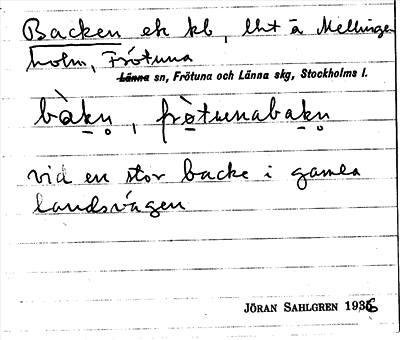 Backen ek kl, lht å Mellinge
holm, Frötuna
Länna sn, Frötuna och Länna skg, Stockholms l.
bàkn̥, frö̀tunabakn̥
vid en stor backe i gamla
landsvägen
JÖRAN SAHLGREN 1936